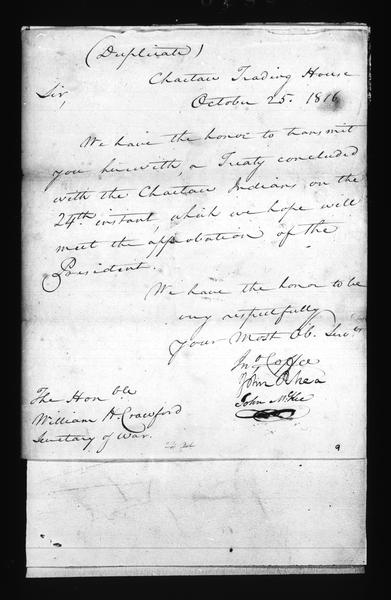 (Duplicate)
Chactaw Trading House
October 25. 1816
Sir,
We have the honor to transmit
you herewith, a Treaty concluded
with the Chactaw Indians on the
24th instant, which we hope will
meet the approbation of the
President.
We have the honor to be
very respectfully
your Most Ob. Servts
Jno Coffee
John Rhea
John McKee
The Honble
William H. Crawford
Secretary of War.